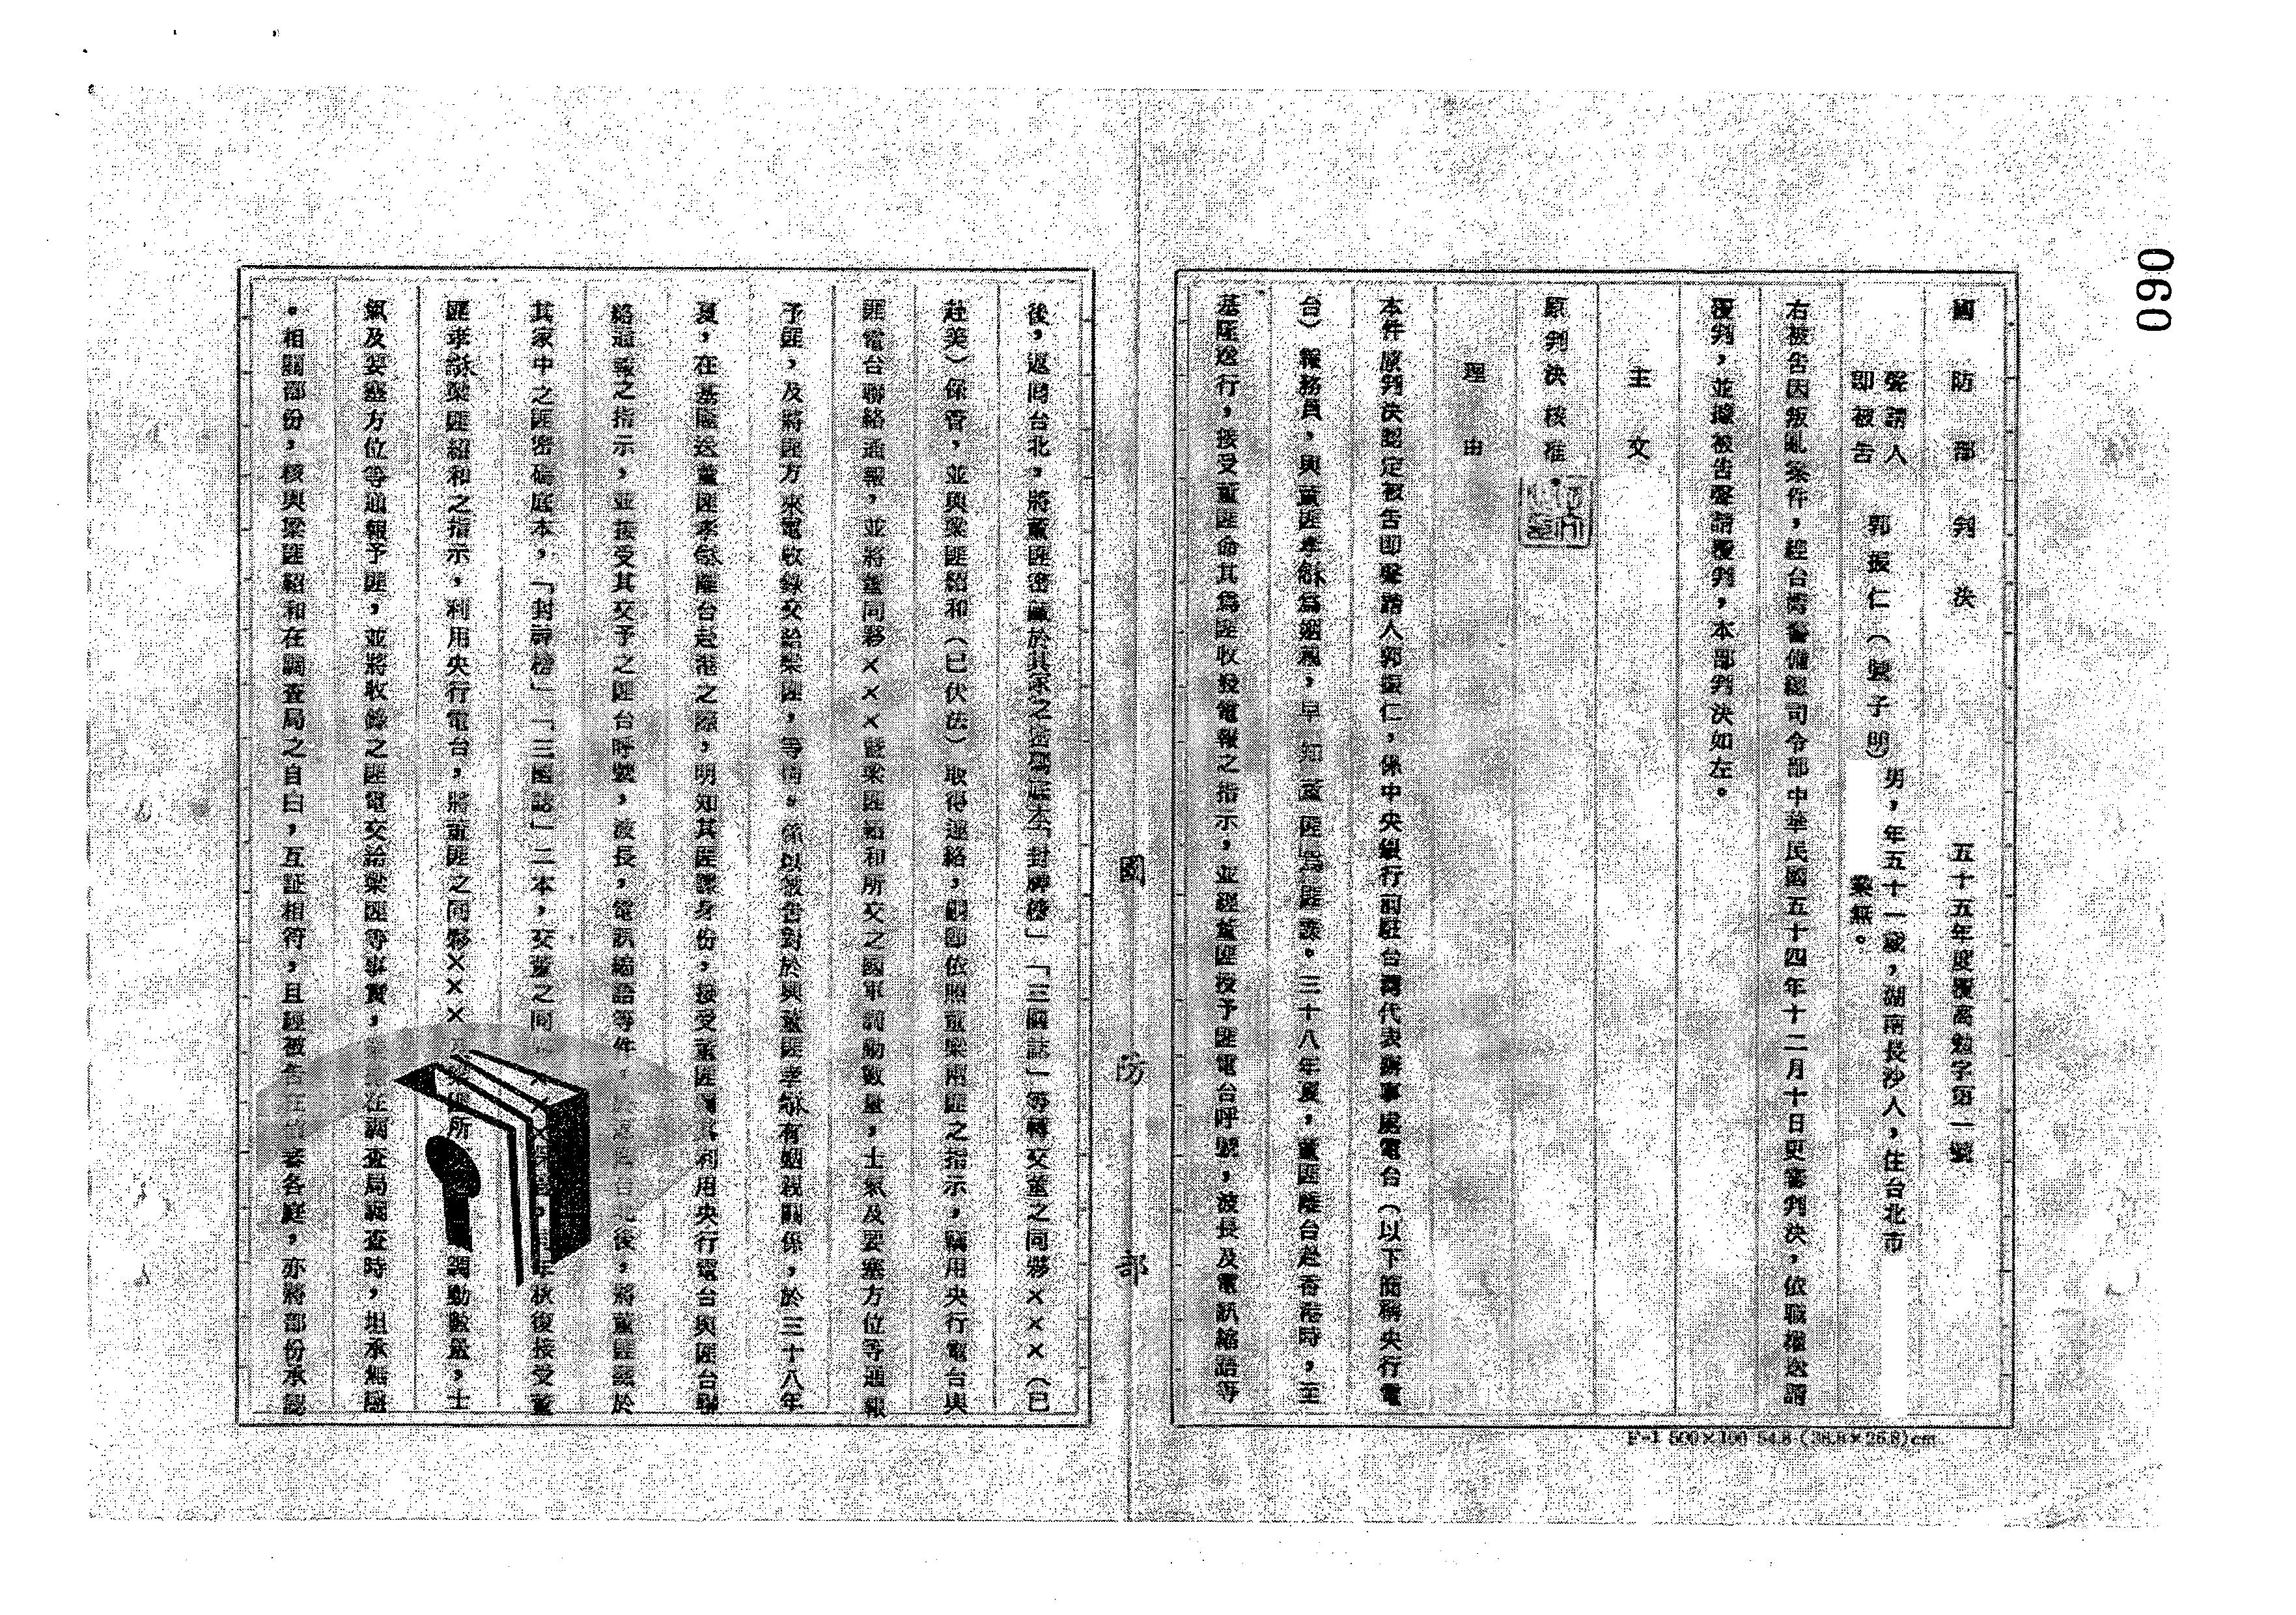 090
國防部判決
五十五年度覆高勉字第一號
聲請人
即被告
郭振仁（號子明）
男，年五十一歲，湖南長沙人，住台北市
業無。
右被告因叛亂案件，經台灣警備總司令部中華民國五十四年十二月十日更審判決，依職權送請
覆判，並據被告聲請覆判，本部判決如左。
主文
原判決核准。
理由
本件原判決認定被告即聲請人郭振仁，係中央銀行前駐台灣代表辦事處電台（以下簡稱央行電
台）報務員，與董匪孝穌為姻親，早知董匪為匪諜。三十八年夏，董匪離台赴香港時，至
基隆送行，接受董匪命其為匪收發電報之指示，並經董匪授予匪電台呼號，波長及電訊縮語等
國防部
後，返回台北，將董匪密藏於其家之密碼底本「封神榜」「三國誌」等轉交董之同夥×××（已
赴美）保管，並與梁匪紹和（已伏法）取得連絡，嗣即依照董梁兩匪之指示，竊用央行電台與
匪電台聯絡通報，並將董同夥×××暨梁匪紹和所交之國軍調動數量，士氣及要塞方位等通報
予匪，及將匪方來電收錄交給梁匪，等情。係以被告對於與董匪孝穌有姻親關係，於三十八年
夏，在基隆送董匪孝穌離台赴港之際，明知其匪諜身份，接受董匪囑其利用央行電台與匪台聯
絡通報之指示，並接受其交予之匪台呼號，波長，電訊縮語等件，台北後，將董匪藏於
其家中之匪密碼底本，「封神榜」「三國誌」二本，交董之同×××保，年秋復接受董
匪孝穌梁匪紹和之指示，利用央行電台，將董匪之同夥×××梁匪所調動數量，士
氣及要塞方位等通報予匪，並將收錄之匪電交給梁匪等事實，在調查局調查時，坦承無隱
。相關部份，核與梁匪紹和在調查局之自白，互証相符，且經被告各庭，亦將部份承認
F-1 500×100 54.8 (38.8×26.8)cm